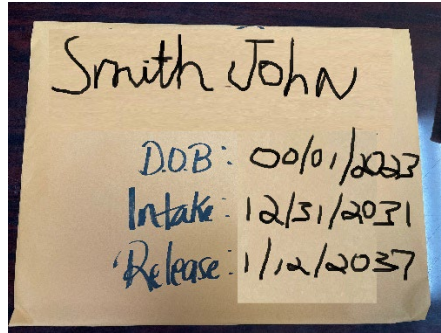 Smith John
D.O.B: 00/01/2023
Intake: 12/31/2031
Release: 1/12/2037